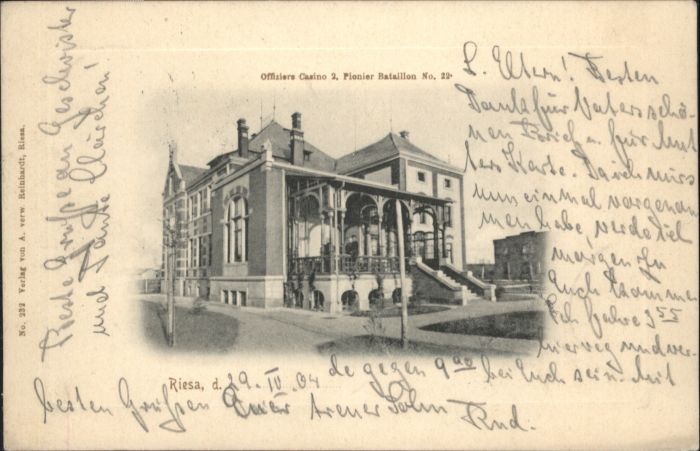 Offiziers Casino 2. Pionier Bataillon No. 22.
L. Eltern! Besten
Dank für Vaters schö-
nen Brief u. für Mut
ters Karte. Da ich mirs
nun einmal vorgenom
men habe, werde ich
morgen zu
Euch kommen
Ich fahre 3 55
hier weg und wer-
de gegen 9 00 bei Euch sein. Mit
besten Grüßen Euer treuer Sohn Rud.
Riesa, d. 29. IV. 04
Beste Grüße an Geschwister
und Tante Clärchen!
No. 232 Verlag von A. verw. Reinhardt, Riesa.